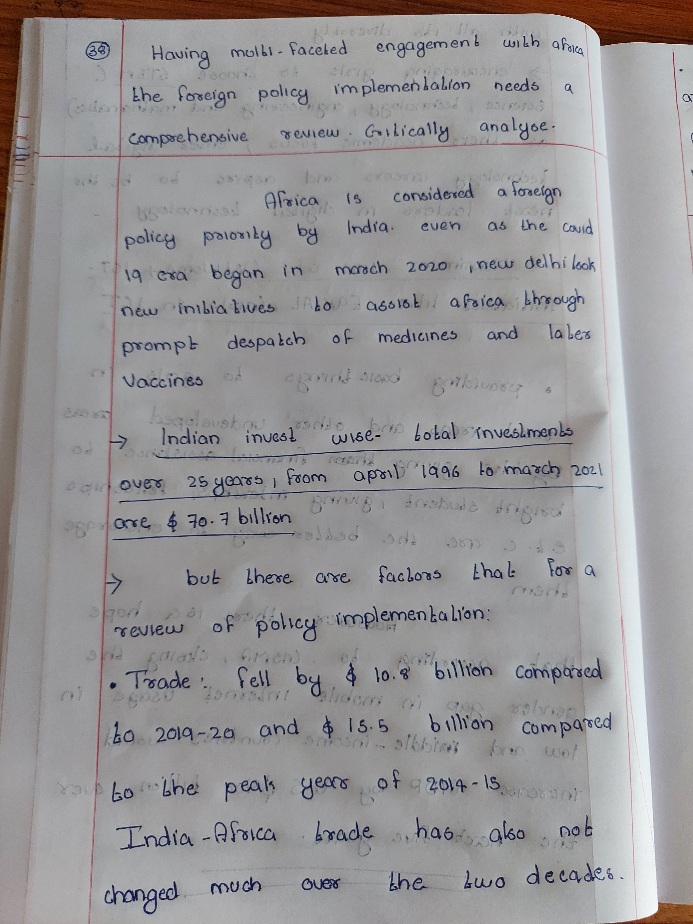 38 Having multi-faceted engagement with africa
the foreign policy implementation needs a
comprehensive review. Critically analyse.
Africa is considered a foreign
policy priority by India. even as the covid
19 era began in march 2020, new delhi look
new initiatives to assist africa through
prompt despatch of medicines and later
vaccines
→ Indian invest wise- total investments
over 25 years, from april 1996 to march 2021
are $ 70.7 billion
→ but there are factors that for a
review of policy implementation:
• Trade: fell by $ 10.8 billion compared
to 2019-20 and $ 15.5 billion compared
to the peak years of 2014-15
India-Africa trade has also not
changed much over the two decades.